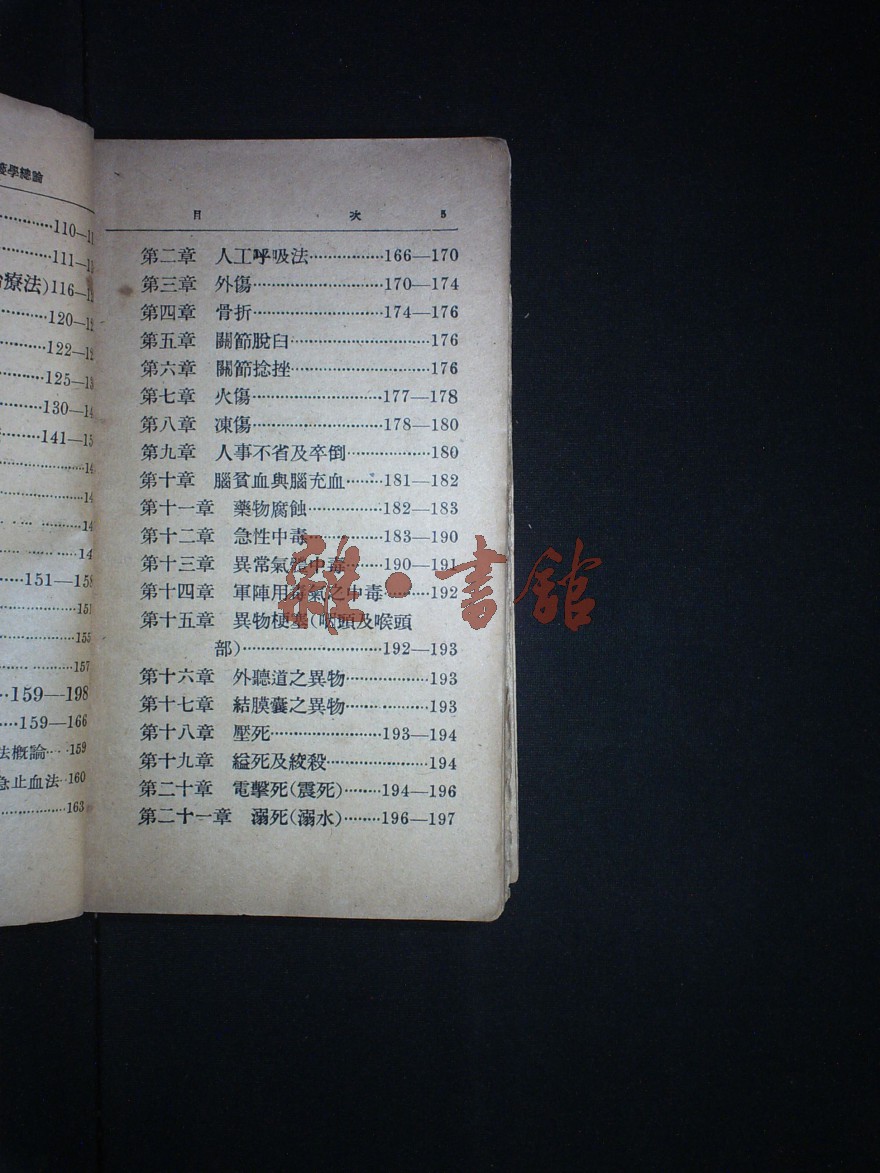 學總論
110—1
111—1
療法)116—12
120—12
122—12
125—13
130—14
141—15
14
14
14
14
151—158
151
155
157
159—198
159—166
法概論…159
急止血法…160
163
目 次 5
第二章 人工呼吸法……………166—170
第三章 外傷……………170—174
第四章 骨折……………174—176
第五章 關節脫臼……………176
第六章 關節捻挫……………176
第七章 火傷……………177—178
第八章 凍傷……………178—180
第九章 人事不省及卒倒……………180
第十章 腦貧血與腦充血………181—182
第十一章 藥物腐蝕……………182—183
第十二章 急性中毒……………183—190
第十三章 異常氣體中毒………190—191
第十四章 軍陣用毒氣之中毒………192
第十五章 異物梗塞(咽頭及喉頭
部)……………192—193
第十六章 外聽道之異物……………193
第十七章 結膜囊之異物……………193
第十八章 壓死……………193—194
第十九章 縊死及絞殺……………194
第二十章 電擊死(震死)………194—196
第二十一章 溺死(溺水)………196—197
雜·書館